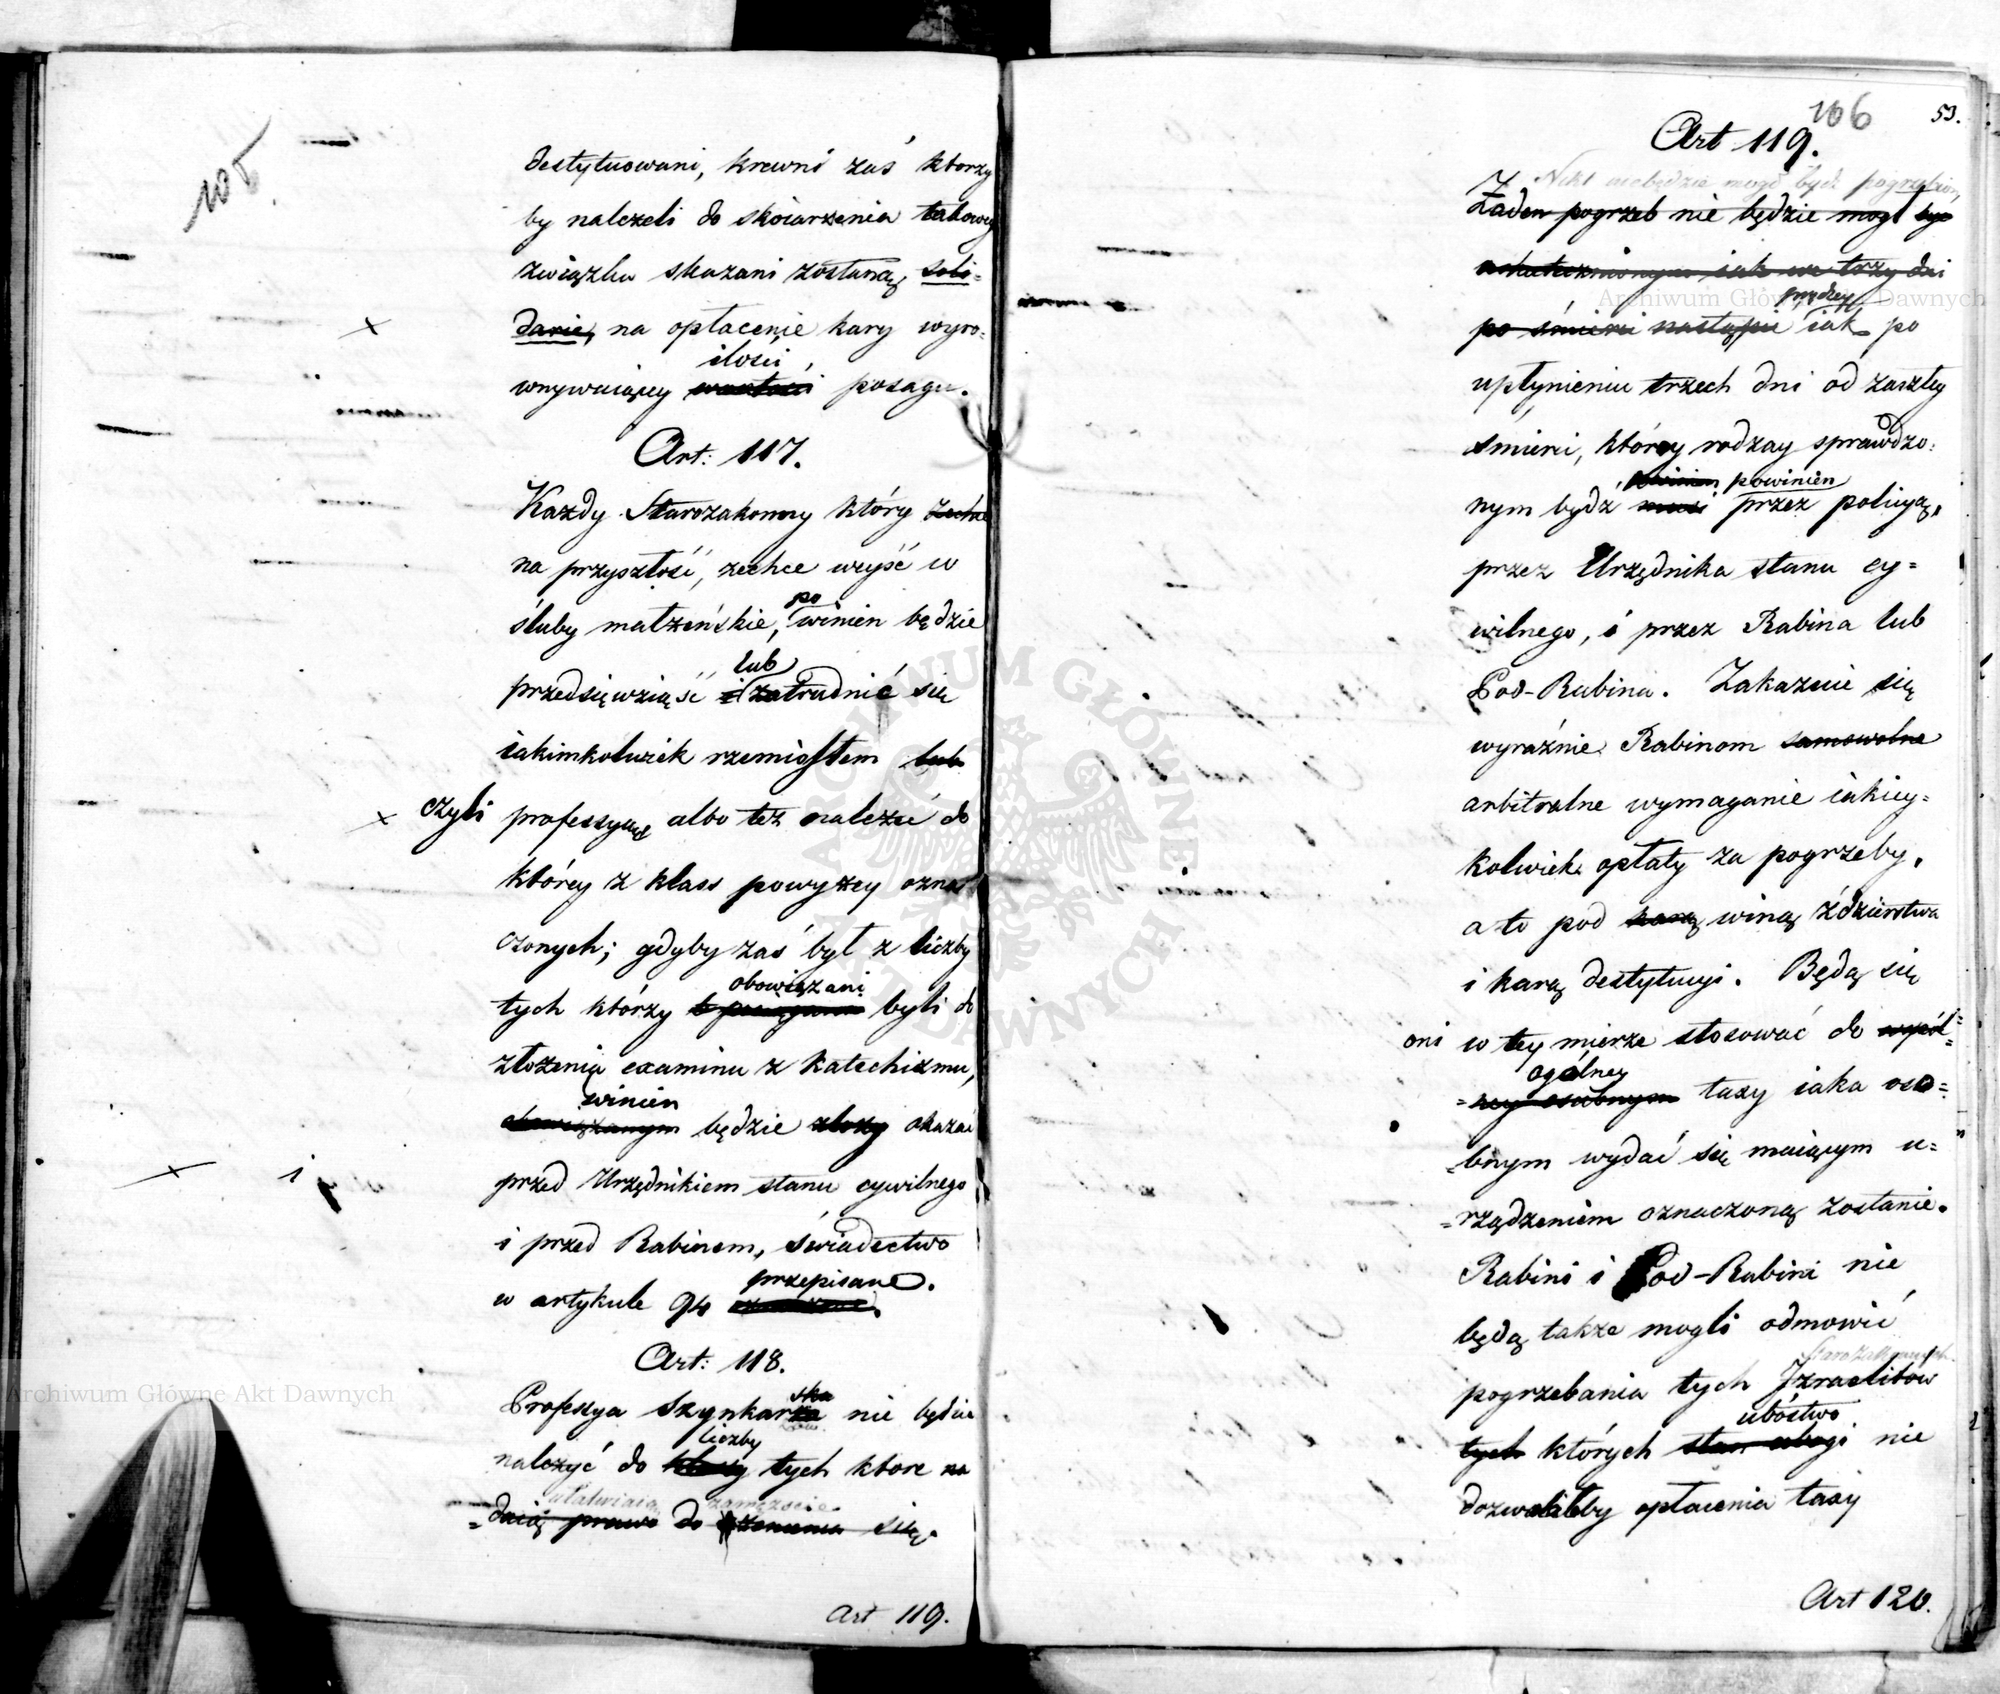 105
destytuowani, krewni zaś ktorzy
by należeli do skoiarzenia takowego
związku skazani zostaną, soli-
darie, na opłacenie kary wyro-
ilości
wnywaiącey wartości posagu.
Art: 117.
Każdy Starozakonny który zechce
na przyszłość, zechce weyść w
śluby małżeńskie, po winien będzie
lub
przedsięwziąść i zatrudnić się
iakimkolwiek rzemiosłem lub
czyli professyą albo też należeć do
którey z klass powyżey ozna-
czonych; gdyby zaś był z liczby
obowiązani
tych którzy byli do
złożenia examinu z Katechizmu,
winien
obowiązanym będzie złoży okazać
przed Urzędnikiem stanu cywilnego
i
i przed Rabinem, świadectwo
przepisane.
w artykule 94
Art: 118.
ska
Professya Szynkarza nie będzie
liczby
należyć do klassy tych ktore na
ułatwiaią zamęzcie
daią prawo do żenienia się.
Art 119.
106
53.
Art 119.
Nikt niebędzie mogł bydź pogrzebiony
Żaden pogrzeb nie będzie mogł być
uskutecznionym iak we trzy dni
prędzey
po śmierci nastąpić iak po
upłynieniu trzech dni od zaszłey
śmierci, którey rodzay sprawdzo-
powinien
nym bydź musi przez policyą,
przez Urzędnika stanu cy-
wilnego, i przez Rabina lub
Pod-Rabina. Zakazuie się
wyraźnie Rabinom samowolne
arbitralne wymaganie iakiey-
kolwiek opłaty za pogrzeby,
a to pod karą winą zdzierstwa
i karą destytucyi. Będą się
oni w tey mierze stosować do wspól-
ogólney
=ney osobnym taxy iaka oso=
=bnym wydać się maiącym u=
=rządzeniem oznaczoną zostanie.
Rabini i Pod-Rabini nie
będą także mogli odmowić
Starozakonnych
pogrzebania tych Izraelitow
ubóstwo
tych których stan ubogi nie
dozwoliłby opłacenia taxy
Art 120.
Archiwum Główne Akt Dawnych
Archiwum Główne Akt Dawnych
ARCHIWUM GŁÓWNE AKT DAWNYCH